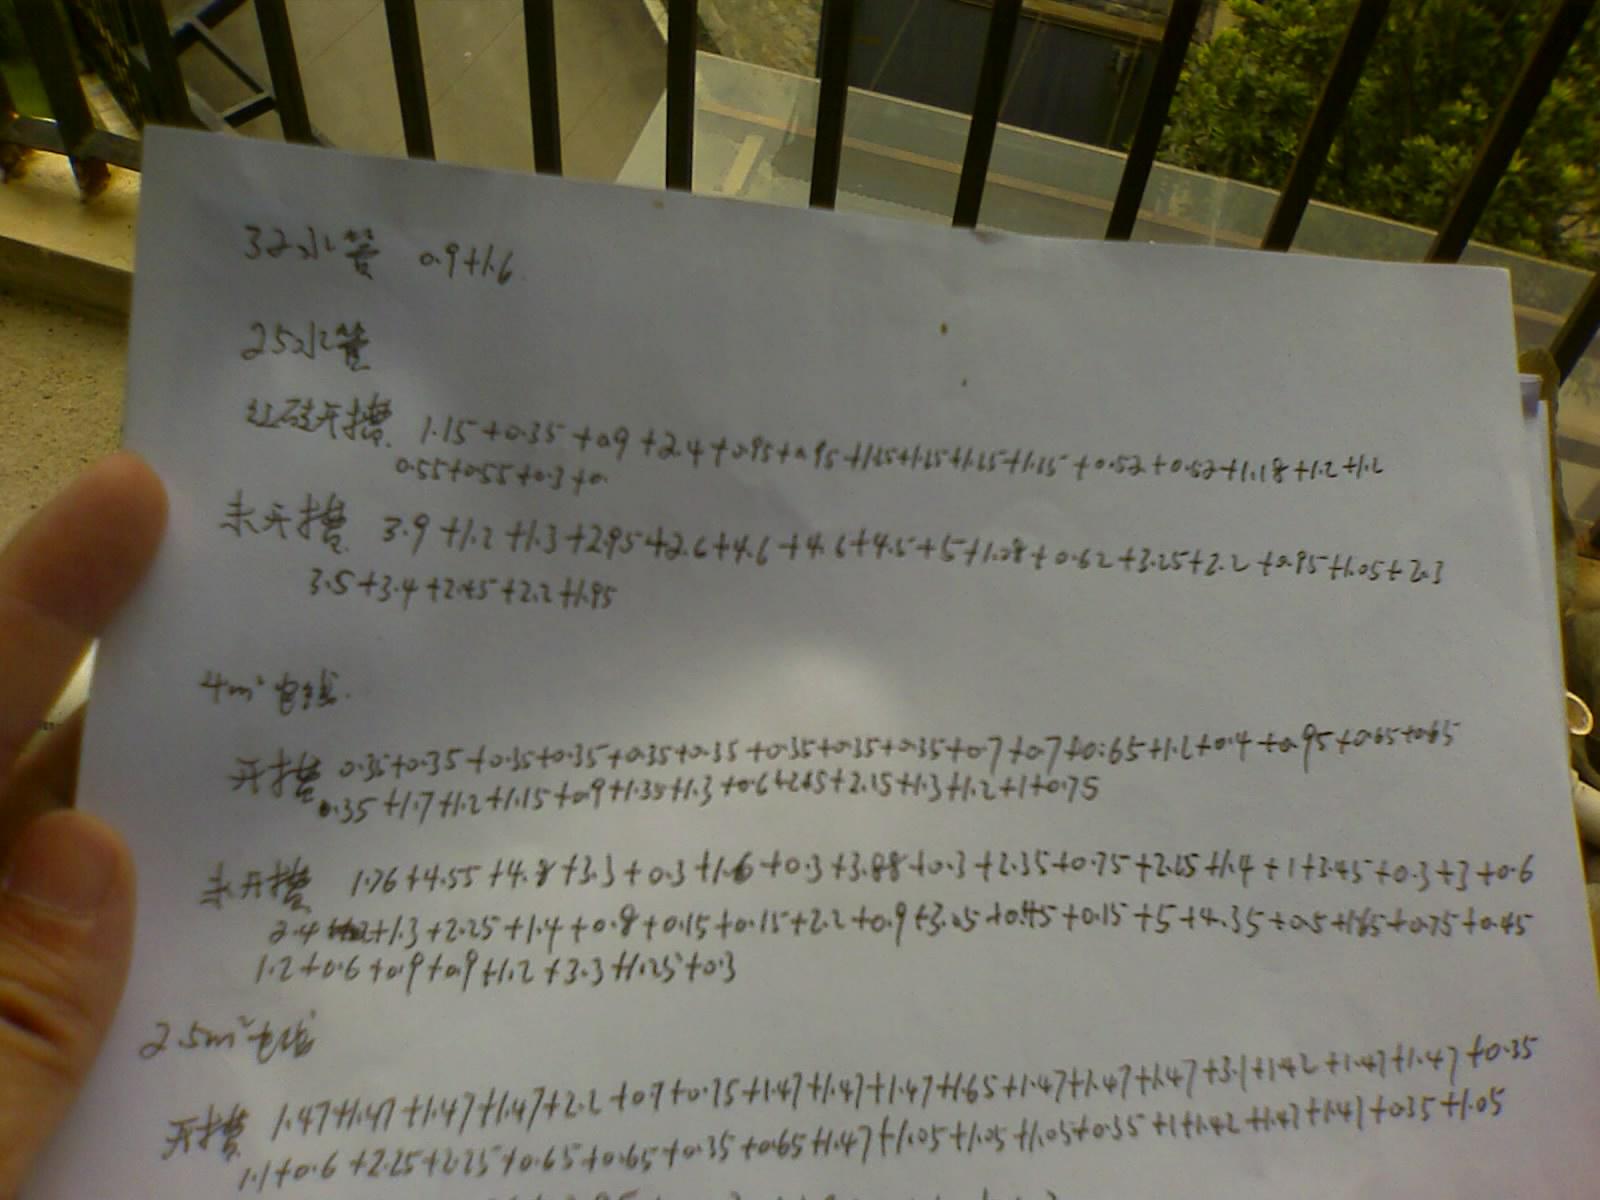 32水管 0.9+1.6
25水管
红砖开槽 1.15+0.35+0.9+2.4+0.95+0.95+1.15+1.15+1.15+1.15+0.52+0.52+1.18+1.2+1.2
0.55+0.55+0.3+0.
未开槽 3.9+1.2+1.3+2.95+2.6+4.6+4.6+4.5+5+1.08+0.62+3.25+2.2+0.95+1.05+2.3
3.5+3.4+2.45+2.2+1.95
4m² 电线.
开槽 0.35+0.35+0.35+0.35+0.35+0.35+0.35+0.35+0.35+0.7+0.7+0.65+1.2+0.4+0.95+0.65+0.65
0.35+1.7+1.2+1.15+0.9+1.35+1.3+0.6+2.45+2.15+1.3+1.2+1+0.75
未开槽 1.76+4.55+4.8+3.3+0.3+1.6+0.3+3.88+0.3+2.35+0.75+2.25+1.4+1+3.45+0.3+3+0.6
2.4+1.3+2.25+1.4+0.8+0.15+0.15+2.2+0.9+3.05+0.45+0.15+5+4.35+0.5+1.85+0.75+0.45
1.2+0.6+0.9+0.9+1.2+3.3+1.25+0.3
2.5m² 电线
开槽 1.47+1.47+1.47+1.47+2.2+0.7+0.75+1.47+1.47+1.47+1.65+1.47+1.47+1.47+3.1+1.42+1.47+1.47+0.35
1.1+0.6+2.25+2.25+0.65+0.65+0.35+0.65+1.47+1.05+1.05+1.05+0.35+1+1.42+1.47+1.47+0.35+1.05